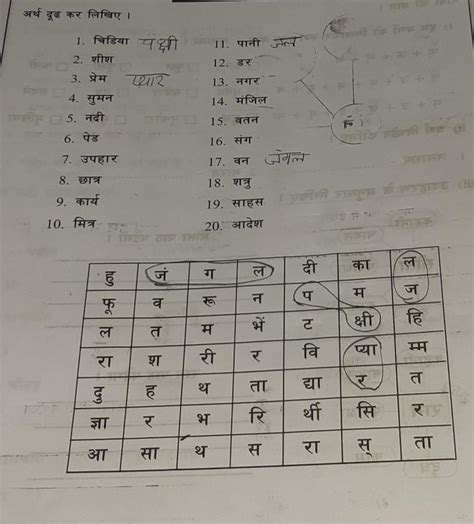 अर्थ दूढ कर लिखिए ।
1. चिडिया पंक्षी 11. पानी जल
2. शीश 12. डर
3. प्रेम प्यार 13. नगर
4. सुमन 14. मंजिल
5. नदी 15. वतन
6. पेड 16. संग
7. उपहार 17. वन जंगल
8. छात्र 18. शत्रु
9. कार्य 19. साहस
10. मित्र 20. आदेश
हु जं ग ल दी का ल
फू व रू न प म ज
ल त म भें ट क्षी हि
रा श री र वि प्या म्म
दु ह थ ता द्या र त
ज्ञा र भ रि र्थी सि र
आ सा थ स रा स् ता